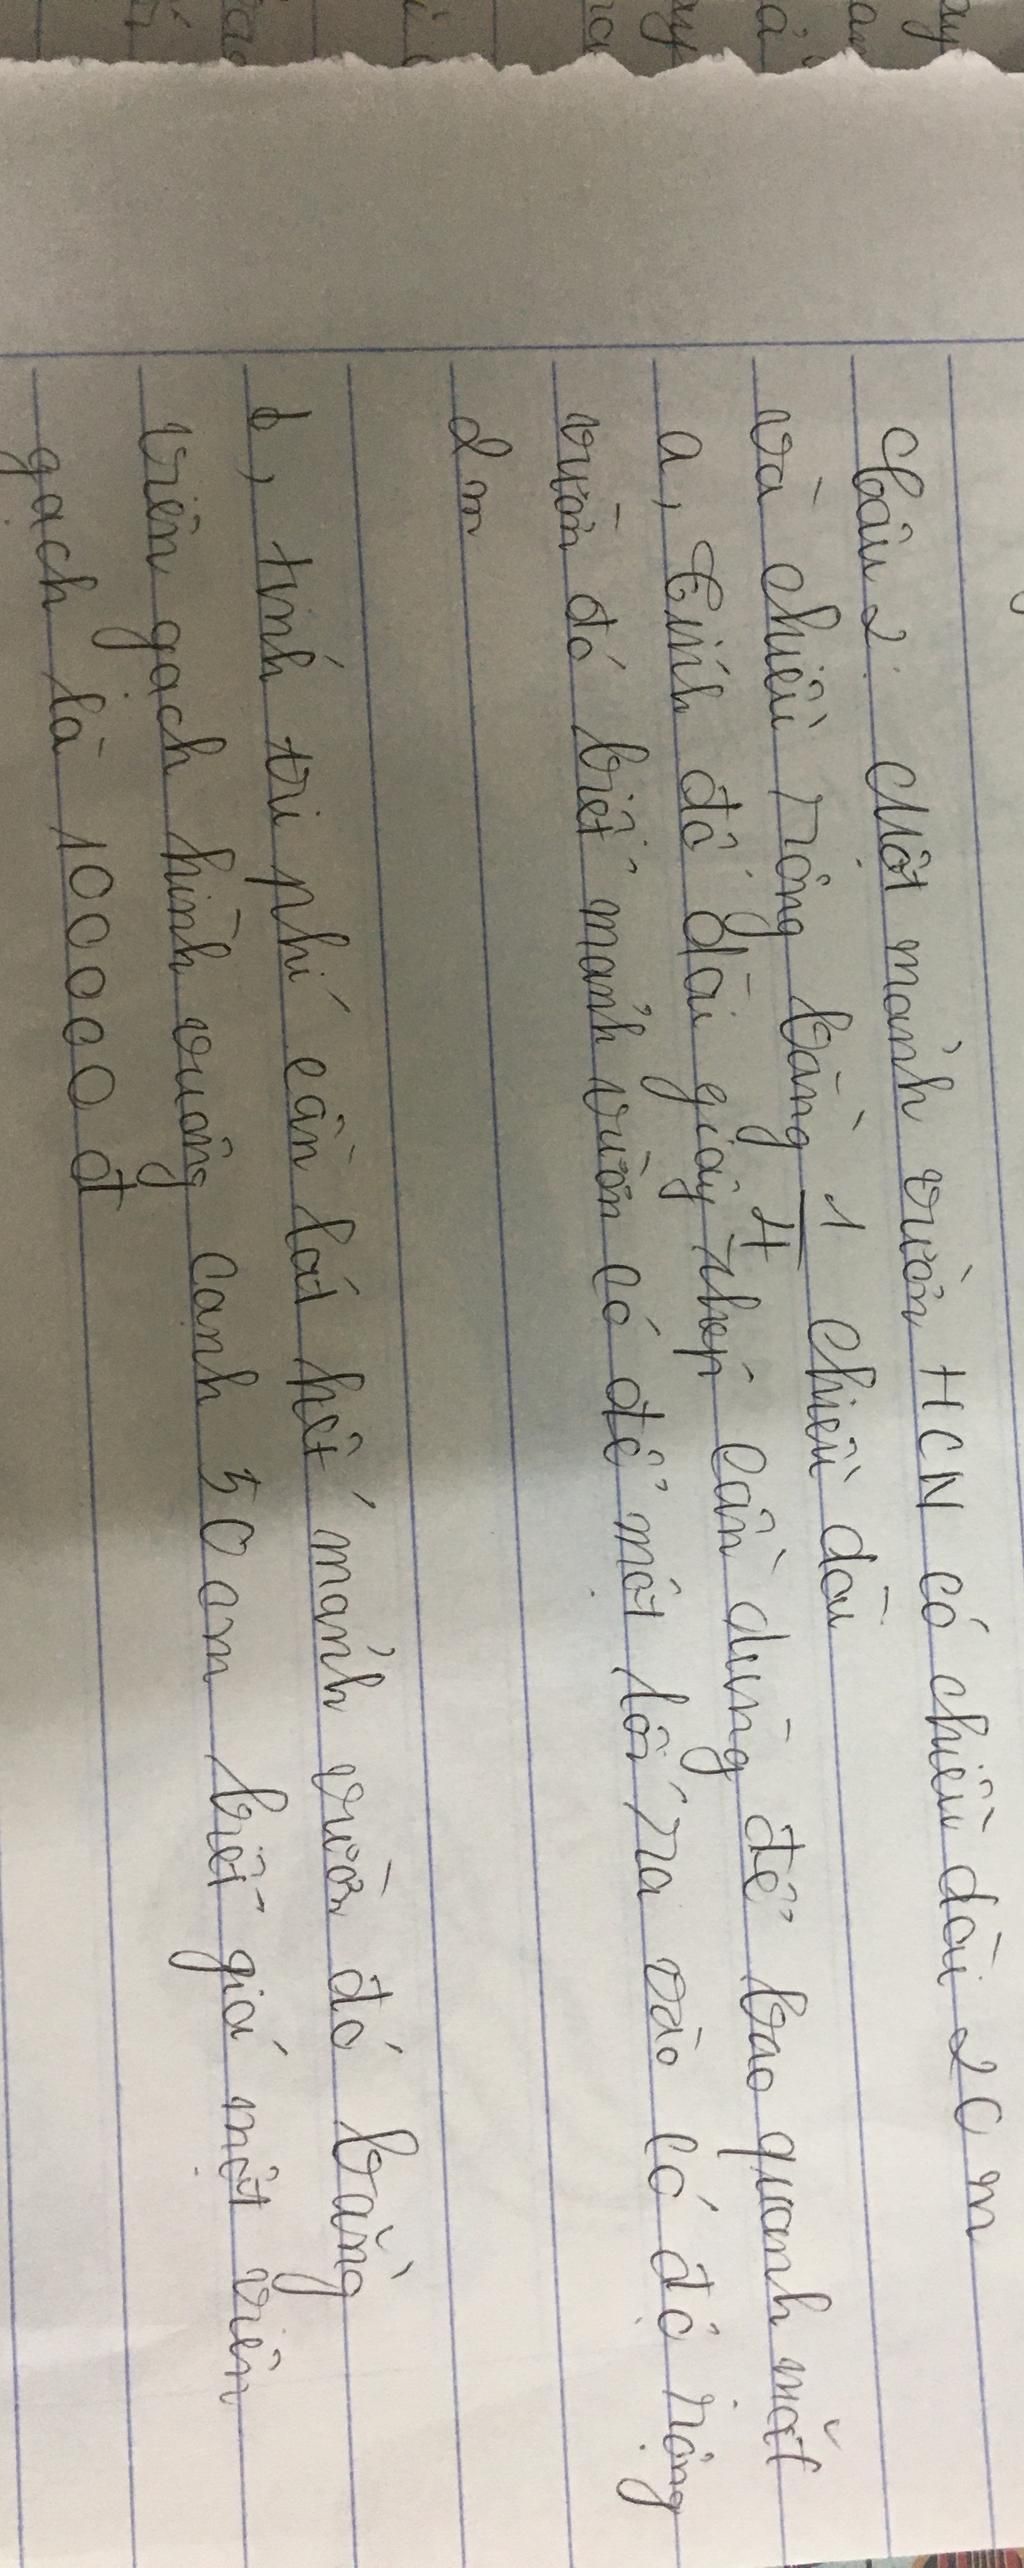 Câu 2: Một mảnh vườn HCN có chiều dài 20 m
và chiều rộng bằng 1/4 chiều dài
a, Tính độ dài giây thép cần dùng để bao quanh mắt
vườn đó biết mảnh vườn có để một lối ra vào có độ rộng
2 m
b, tính tri phí cần lát hết mảnh vườn đó bằng
viên gạch hình vuông canh 50 cm biết giá một viên
gạch là 10000 đ